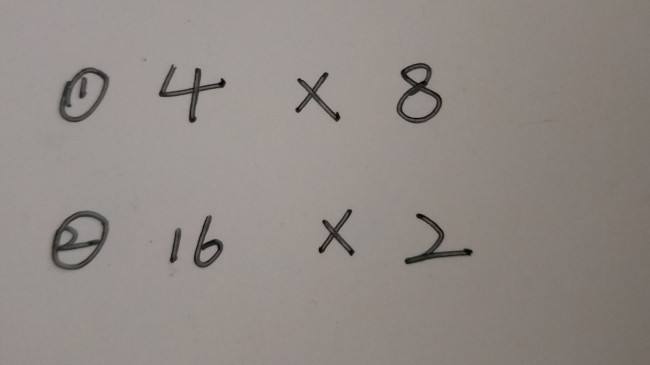 ① 4 × 8
② 16 × 2